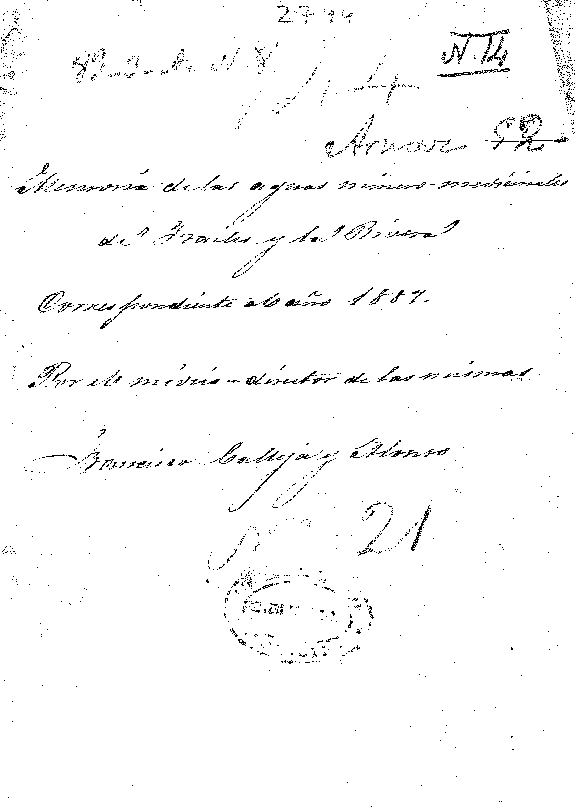 2774
N. 14
Armar 52
Memoria de las aguas minero-medicinales
de Frailes y la Rivera
Correspondiente al año 1887.
Por el médico-director de las mismas
Francisco Calleja y Alonso
21